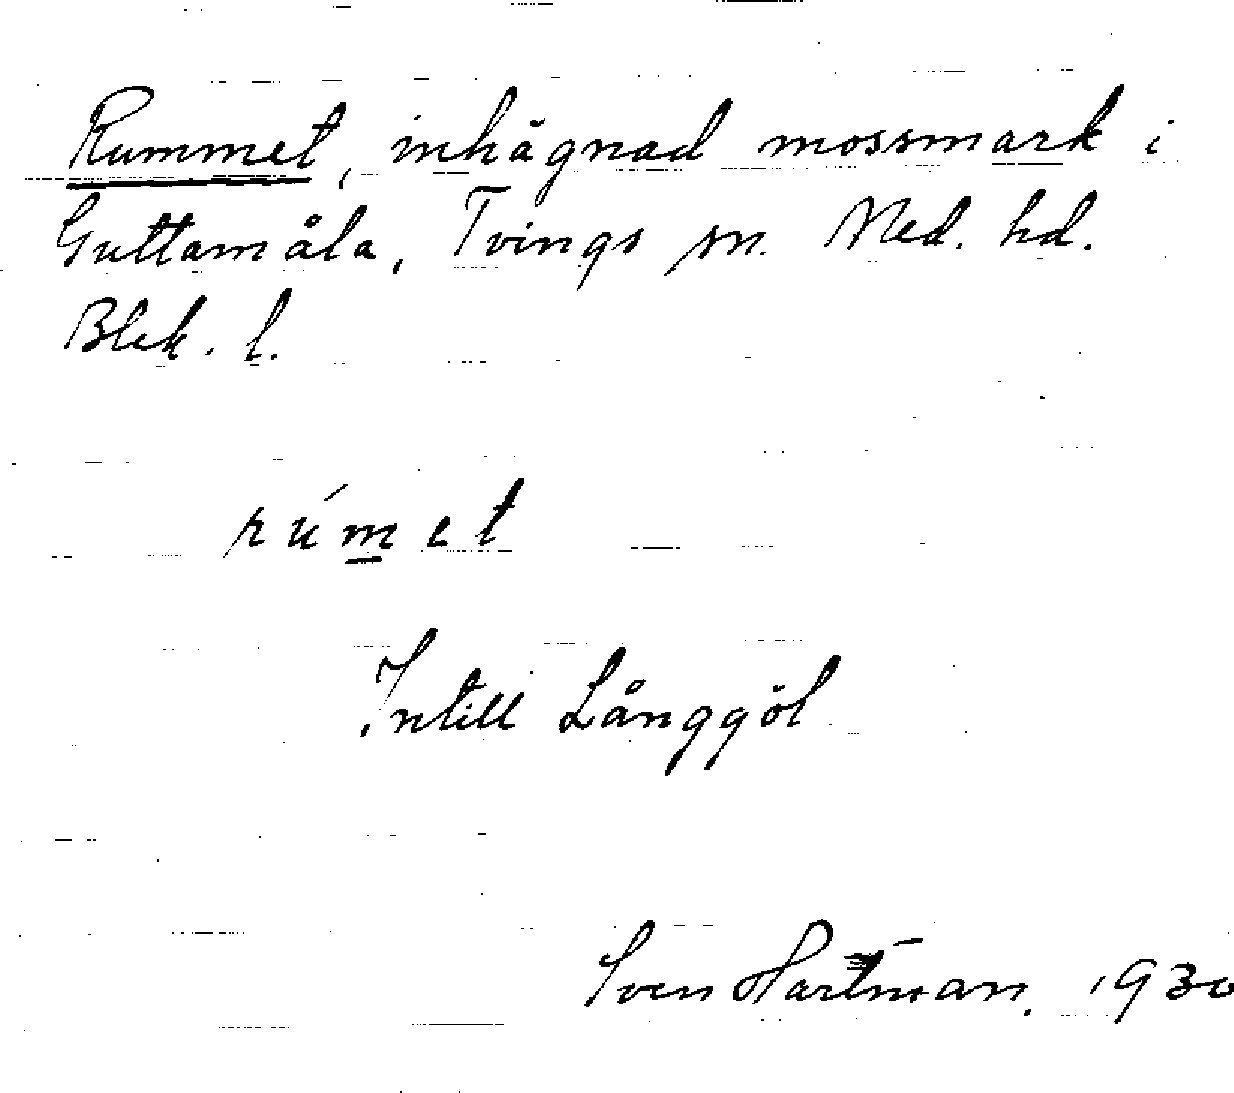 Rummet, inhägnad mossmark i
Guttamåla, Tvings sn. Med. hd.
Blek. l.
rúmet
Intill Långgöl
Sven Hartman. 1930